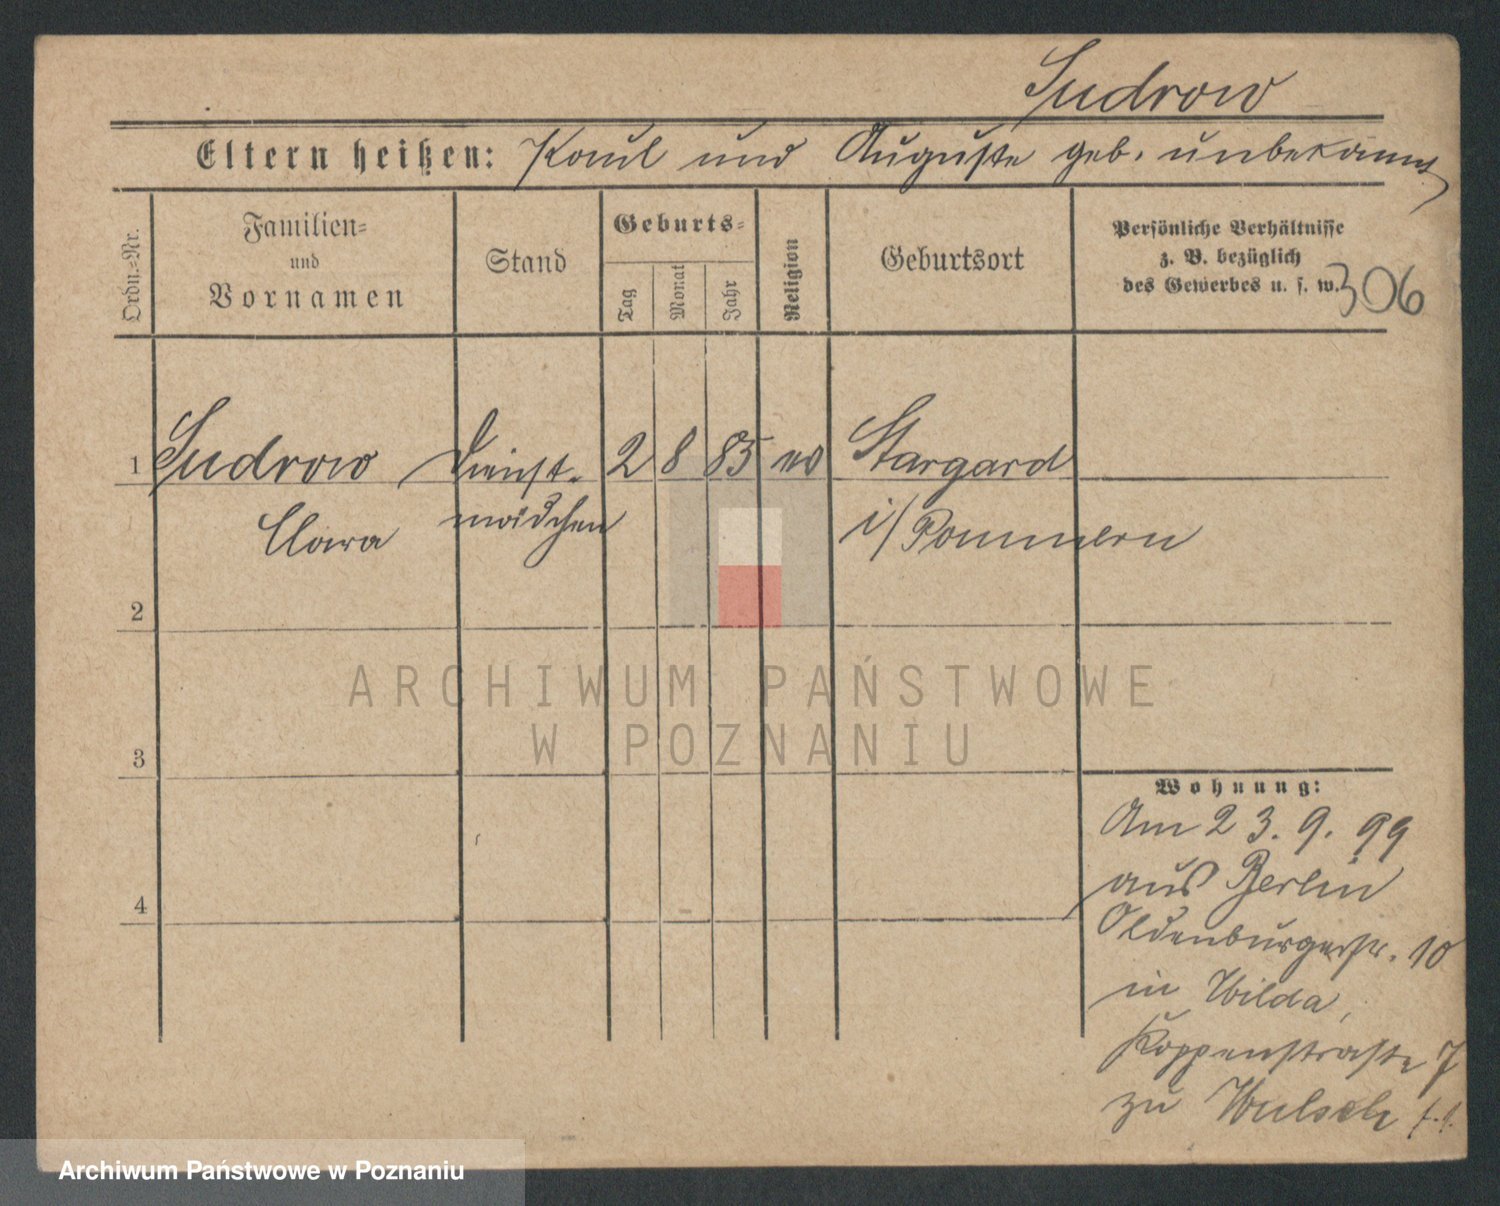 Sudrow
Eltern heißen: Paul und Auguste geb. unbekannt
Ordn.-Nr.
Familien-
und
Vornamen
Stand
Geburts-
Tag
Monat
Jahr
Religion
Geburtsort
Persönliche Verhältnisse
z. B. bezüglich
des Gewerbes u. s. w.
306
1 Sudrow Dienst- 2 8 85 ev Stargard
Clara mädchen i/Pommern
2
3
4
ARCHIWUM PAŃSTWOWE
W POZNANIU
Wohnung:
Am 23. 9. 99
aus Berlin
Oldenburgerstr. 10
in Wilda,
Koppenstraße 7
zu
Archiwum Państwowe w Poznaniu